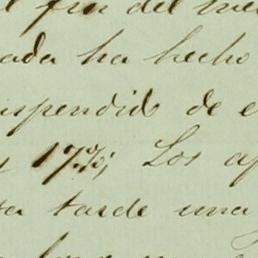 l fin del me
ada ha hecho
uspendido de e
y 17 3/8; Los ap
ta tarde una